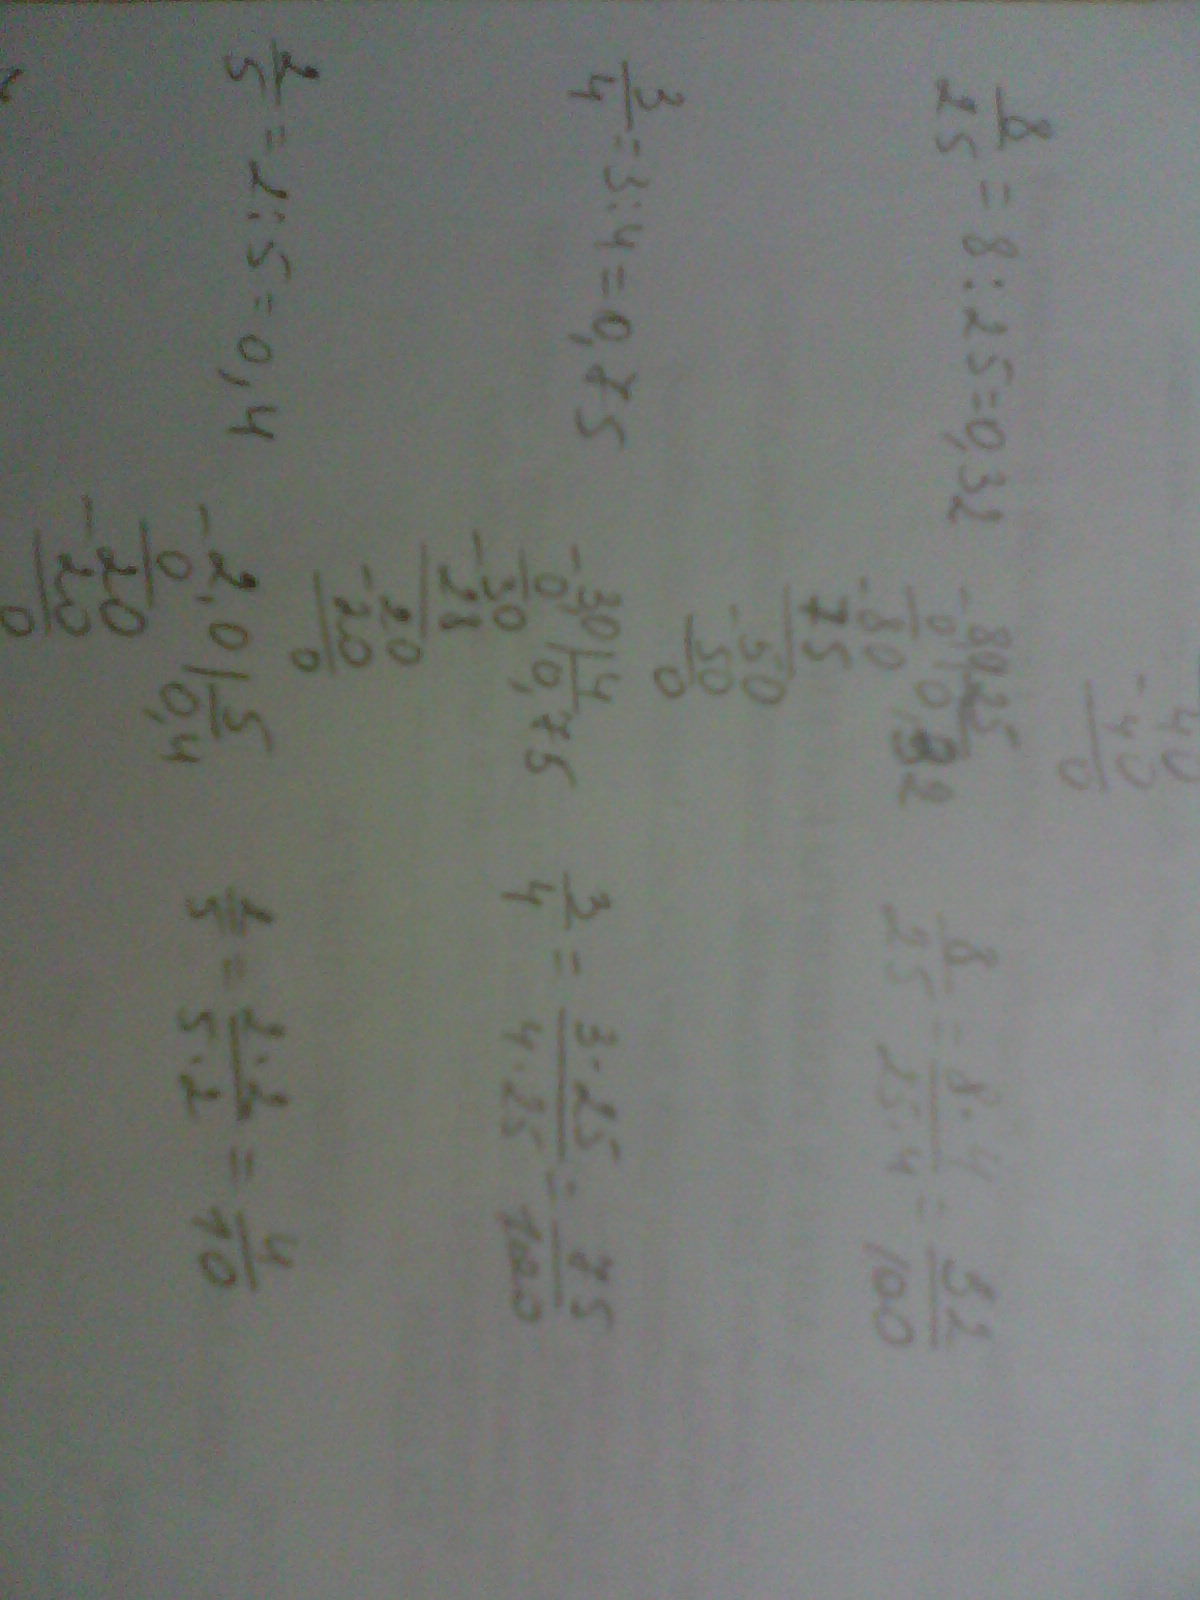 40
-40
0
8/25 = 8:25=0,32
-80|25
0|0,32
-80
75
-50
50
0
8/25 = 8·4/25·4 = 32/100
3/4 = 3:4=0,75
-30|4
0|0,75
-30
28
-20
20
0
3/4 = 3·25/4·25 = 75/100
2/5 = 2:5=0,4
-2,0|5
0|0,4
-20
20
0
2/5 = 2·2/5·2 = 4/10